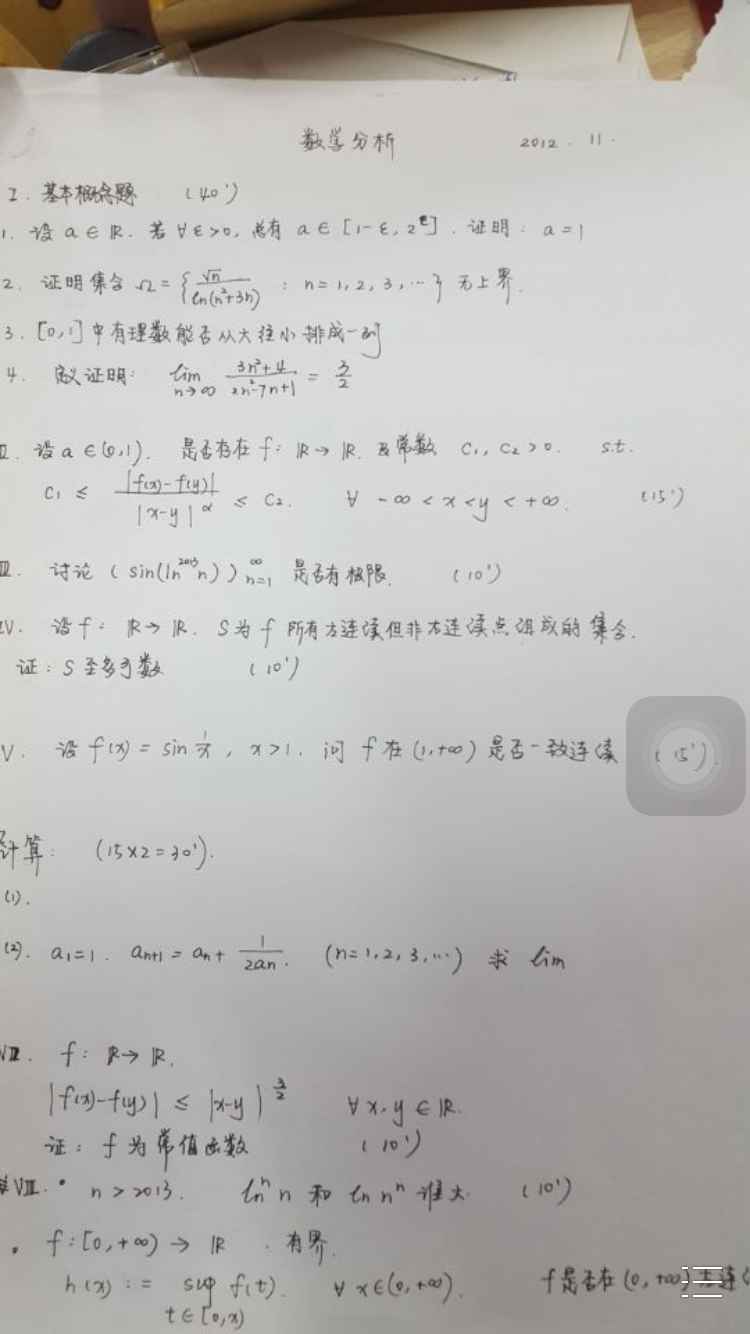 数学分析 2012.11.
I. 基本概念题 (40')
1. 设 a∈ℝ. 若 ∀ε>0, 总有 a∈[1-ε, 2^ε]. 证明: a=1
2. 证明集合 Ω={√n/ln(n²+3n) : n=1,2,3,…} 无上界.
3. [0,1]中有理数能否从大往小排成一列
4. 定义证明: lim_{n→∞} (3n²+4)/(2n²-7n+1) = 3/2
II. 设 a∈(0,1). 是否存在 f: ℝ→ℝ. 及常数 C₁, C₂>0. s.t.
C₁ ≤ |f(x)-f(y)|/|x-y|^α ≤ C₂. ∀ -∞<x<y<+∞. (15')
III. 讨论 (sin(ln^{2013} n))_{n=1}^∞ 是否有极限. (10')
IV. 设 f: ℝ→ℝ. S为 f 所有左连续但非右连续点组成的集合.
证: S至多可数 (10')
V. 设 f(x) = sin 1/x, x>1. 问 f 在 (1,+∞) 是否一致连续 (15').
计算: (15×2=30').
(1).
(2). a₁=1. a_{n+1} = a_n + 1/(2a_n). (n=1,2,3,…) 求 lim
VII. f: ℝ→ℝ.
|f(x)-f(y)| ≤ |x-y|^{3/2} ∀ x,y∈ℝ.
证: f 为常值函数 (10')
VIII. • n>2013. lnⁿ n 和 ln nⁿ 谁大. (10')
• f:[0,+∞)→ℝ. 有界.
h(x) := sup_{t∈[0,x)} f(t). ∀ x∈(0,+∞). f是否在(0,+∞)左连